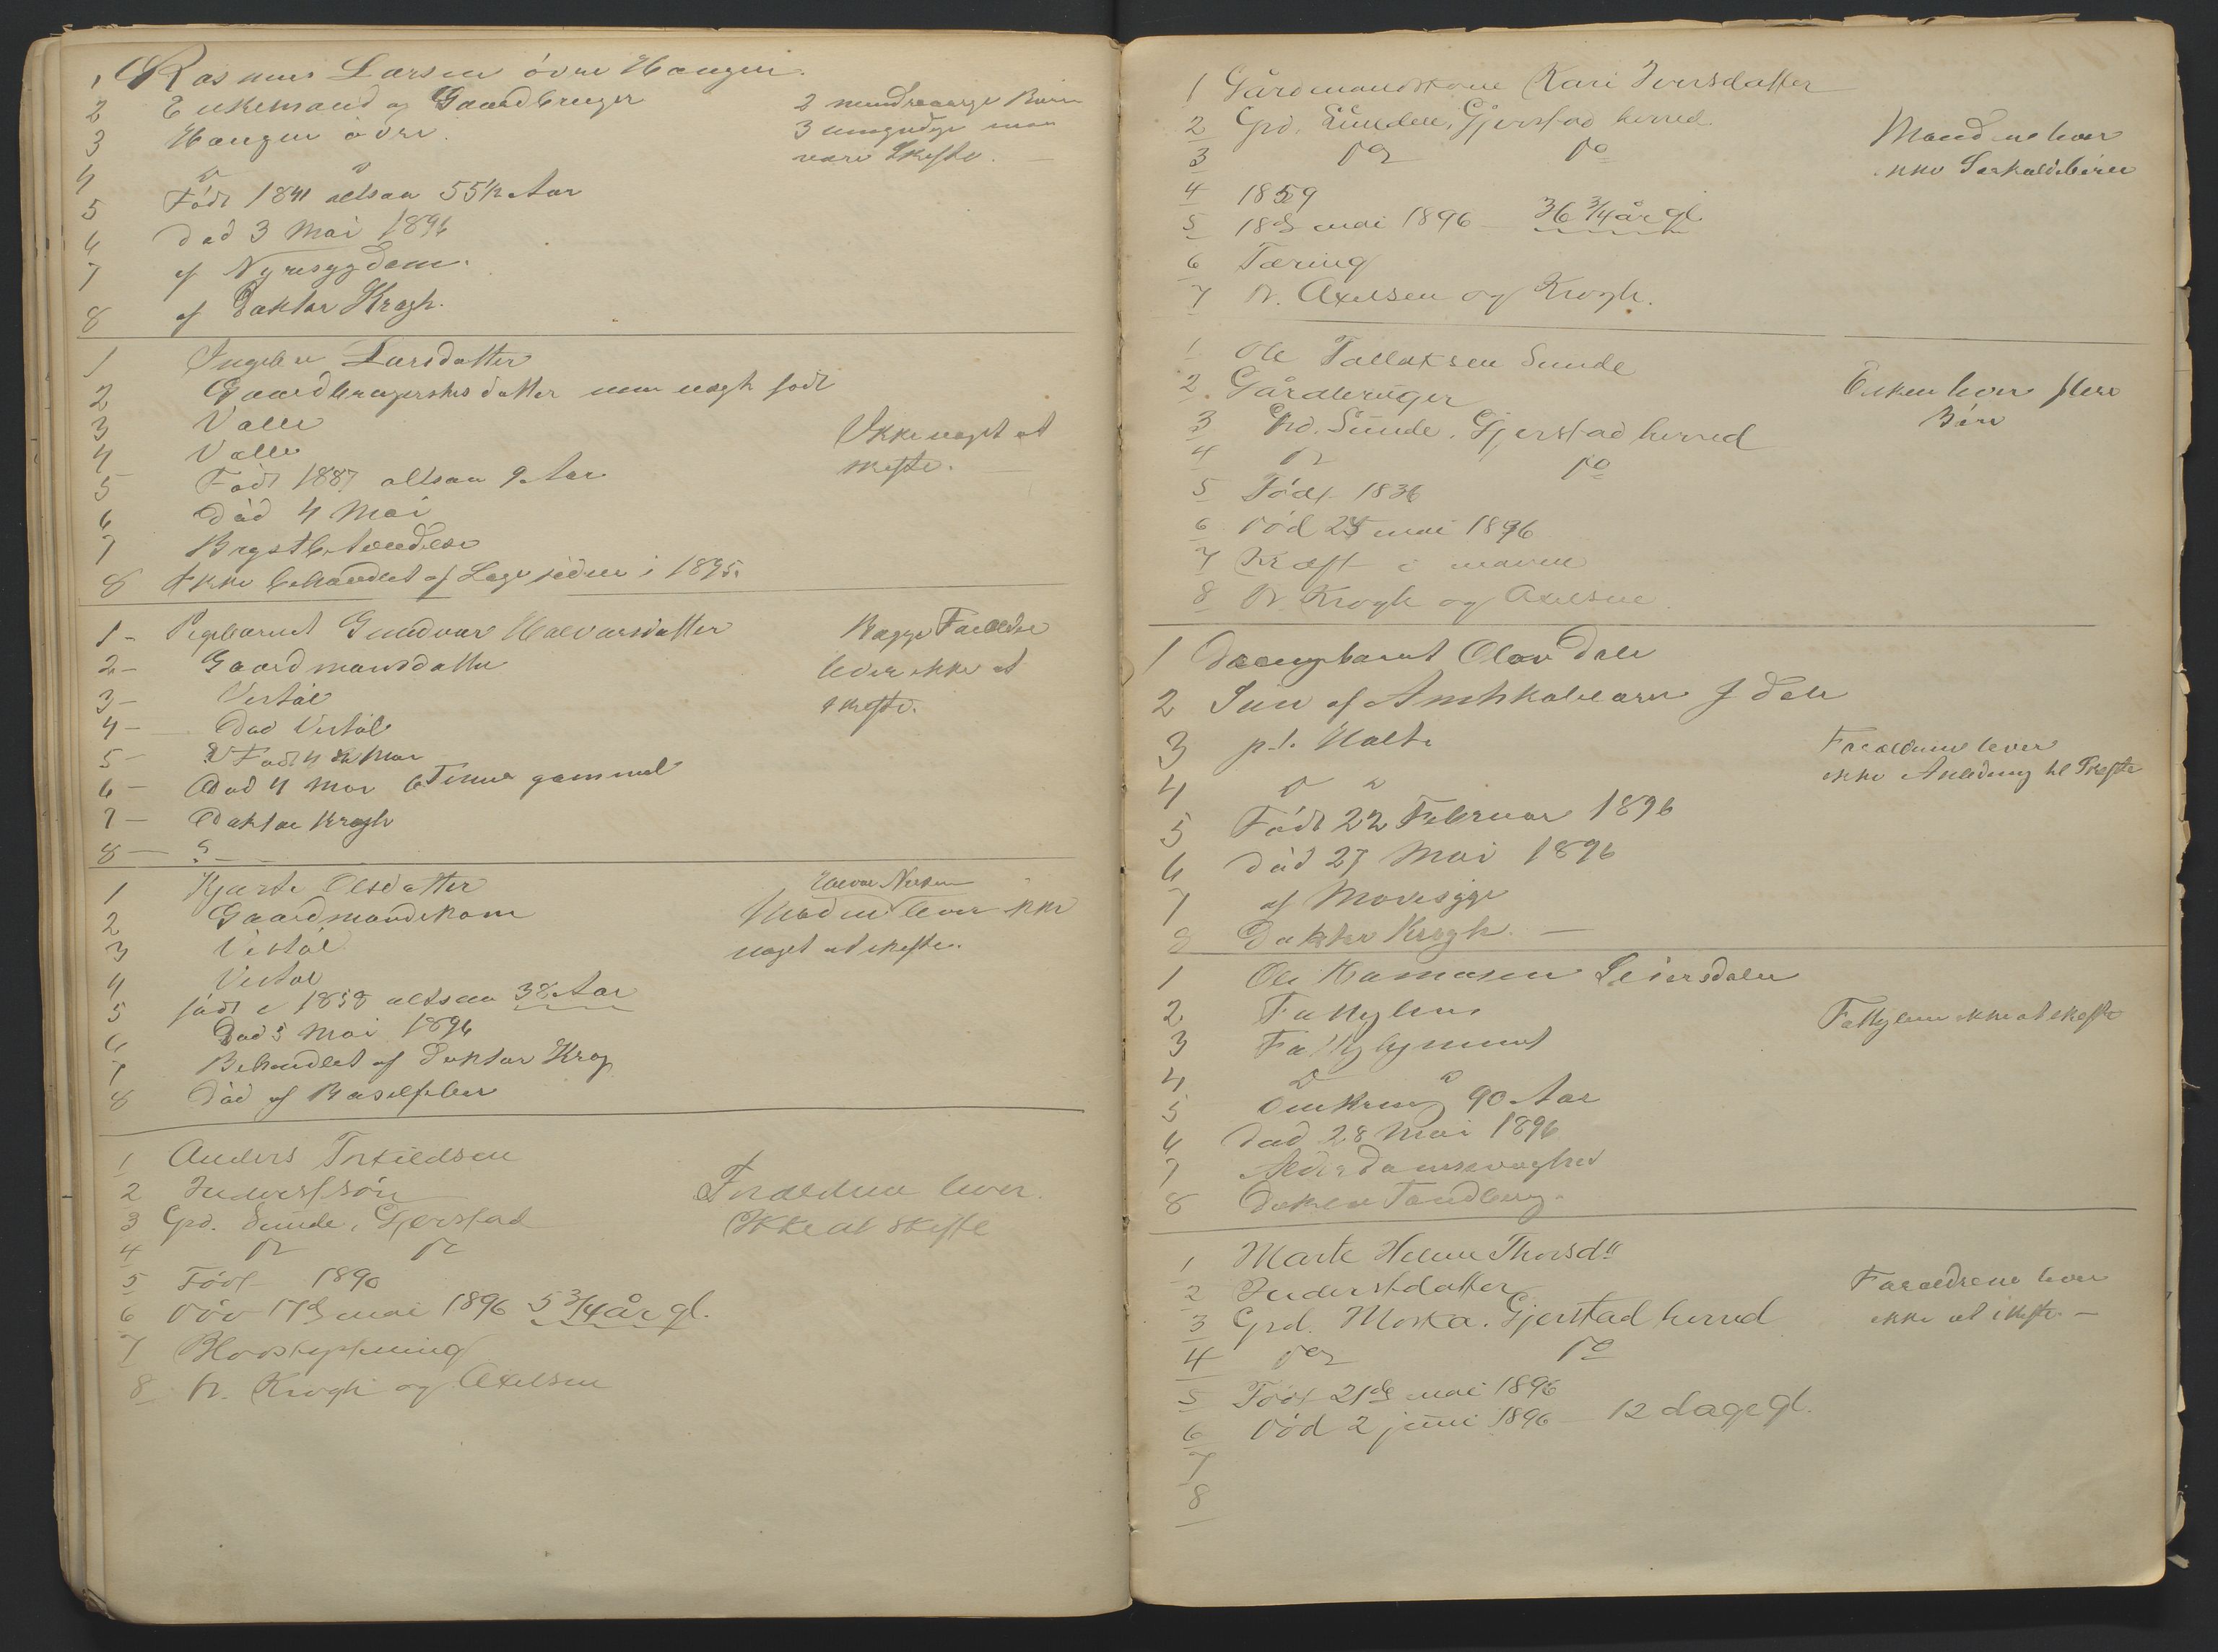 1 Rasmus Larsen övre Haugen.
2 Enkemand og Gaardbruger
3 Haugen övre.
4 D o
5 Födt 1841 altsaa 55 1/2 Aar
6 död 3 Mai 1896
7 af Nyresygdom.
8 af Doktor Krogh.
2 mindreaarige Børn
3 umyndige maa
være Skifte. —
1 Ingeborg Larsdatter
2 Gaardbrugerskes datter uegte født
3 Valle
4 Valle
5 Födt 1887 altsaa 9 Aar
6 Död 4 Mai
7 Brystbetændelse
8 Ikke behandlet af Læge siden i 1895.
Ikke noget at
skifte. —
1 - Pigebarnet Gundvor Halvorsdatter
2 - Gaardmansdatter
3 - Vestøl
4 - Död Vestöl
5 - Födt 4 Mai
6 - Död 4 Mai 6 Timer gammel
7 - Doktor Krogh
8 - ?
Begge Forældre
lever ikke at
skifte.
1 Kjerste Olsdatter
2 Gaardmandskone
3 Vestöl
4 Vestøl
5 födt i 1858 altsaa 38 Aar
6 Död 5 Mai 1896
7 Behandlet af Doktor Krog
8 Död af Barselfeber
Manden lever ikke
noget at skifte.
1 Anders Terkildsen
2 Inderstsön
3 Grd. Sunde, Gjerstad
4 do do
5 Född 1890
6 Död 17de mai 1896 5 3/4 år gl.
7 Blodstyrtning
8 Dr. Krogh og Axelsen
Forældrene lever.
Ikke at skifte
1 Gårdmandskone Kari Iversdatter
2 Grd. Sunde, Gjerstad herred.
3 do do
4 1859
5 18de mai 1896 — 36 3/4 år gl.
6 Tæring
7 Dr. Axelsen og Krogh.
Manden lever
ikke Særkuldsbörn
1 Ole Tallaksen Sunde
2 Gårdbruger
3 Grd. Sunde. Gjerstad herred
4 do do
5 Födt 1836
6 död 25 mai 1896
7 Kræft i maven
8 Dr. Krogh og Axelsen.
Enken lever flere
Börn
1 Drengebarnet Olav Dale
2 Sön af Amtskolelærer J Dale
3 p.t. Holte
4 D o
5 Födt 22 Februar 1896
6 död 27 Mai 1896
7 af Mavesyge
8 Doktor Krogh. —
Forældrene lever
ikke Anledning til Skifte
1 Ole Hansen Seiersdalen
2 Fattiglem
3 Fattiglemmet
4 D o
5 Omkring 90 Aar
6 död 28 Mai 1896
7 Alderdomssvaghed
8 Doktor Tandberg.
Fattiglem ikke at skifte
1 Marte Helene Thorsdtt
2 Inderstdatter
3 Grd. Moska. Gjerstad herred
4 do do
5 Födt 21de mai 1896
6 Död 2 juni 1896 — 12 dage gl.
7
8
Forældrene lever
ikke at skifte. —